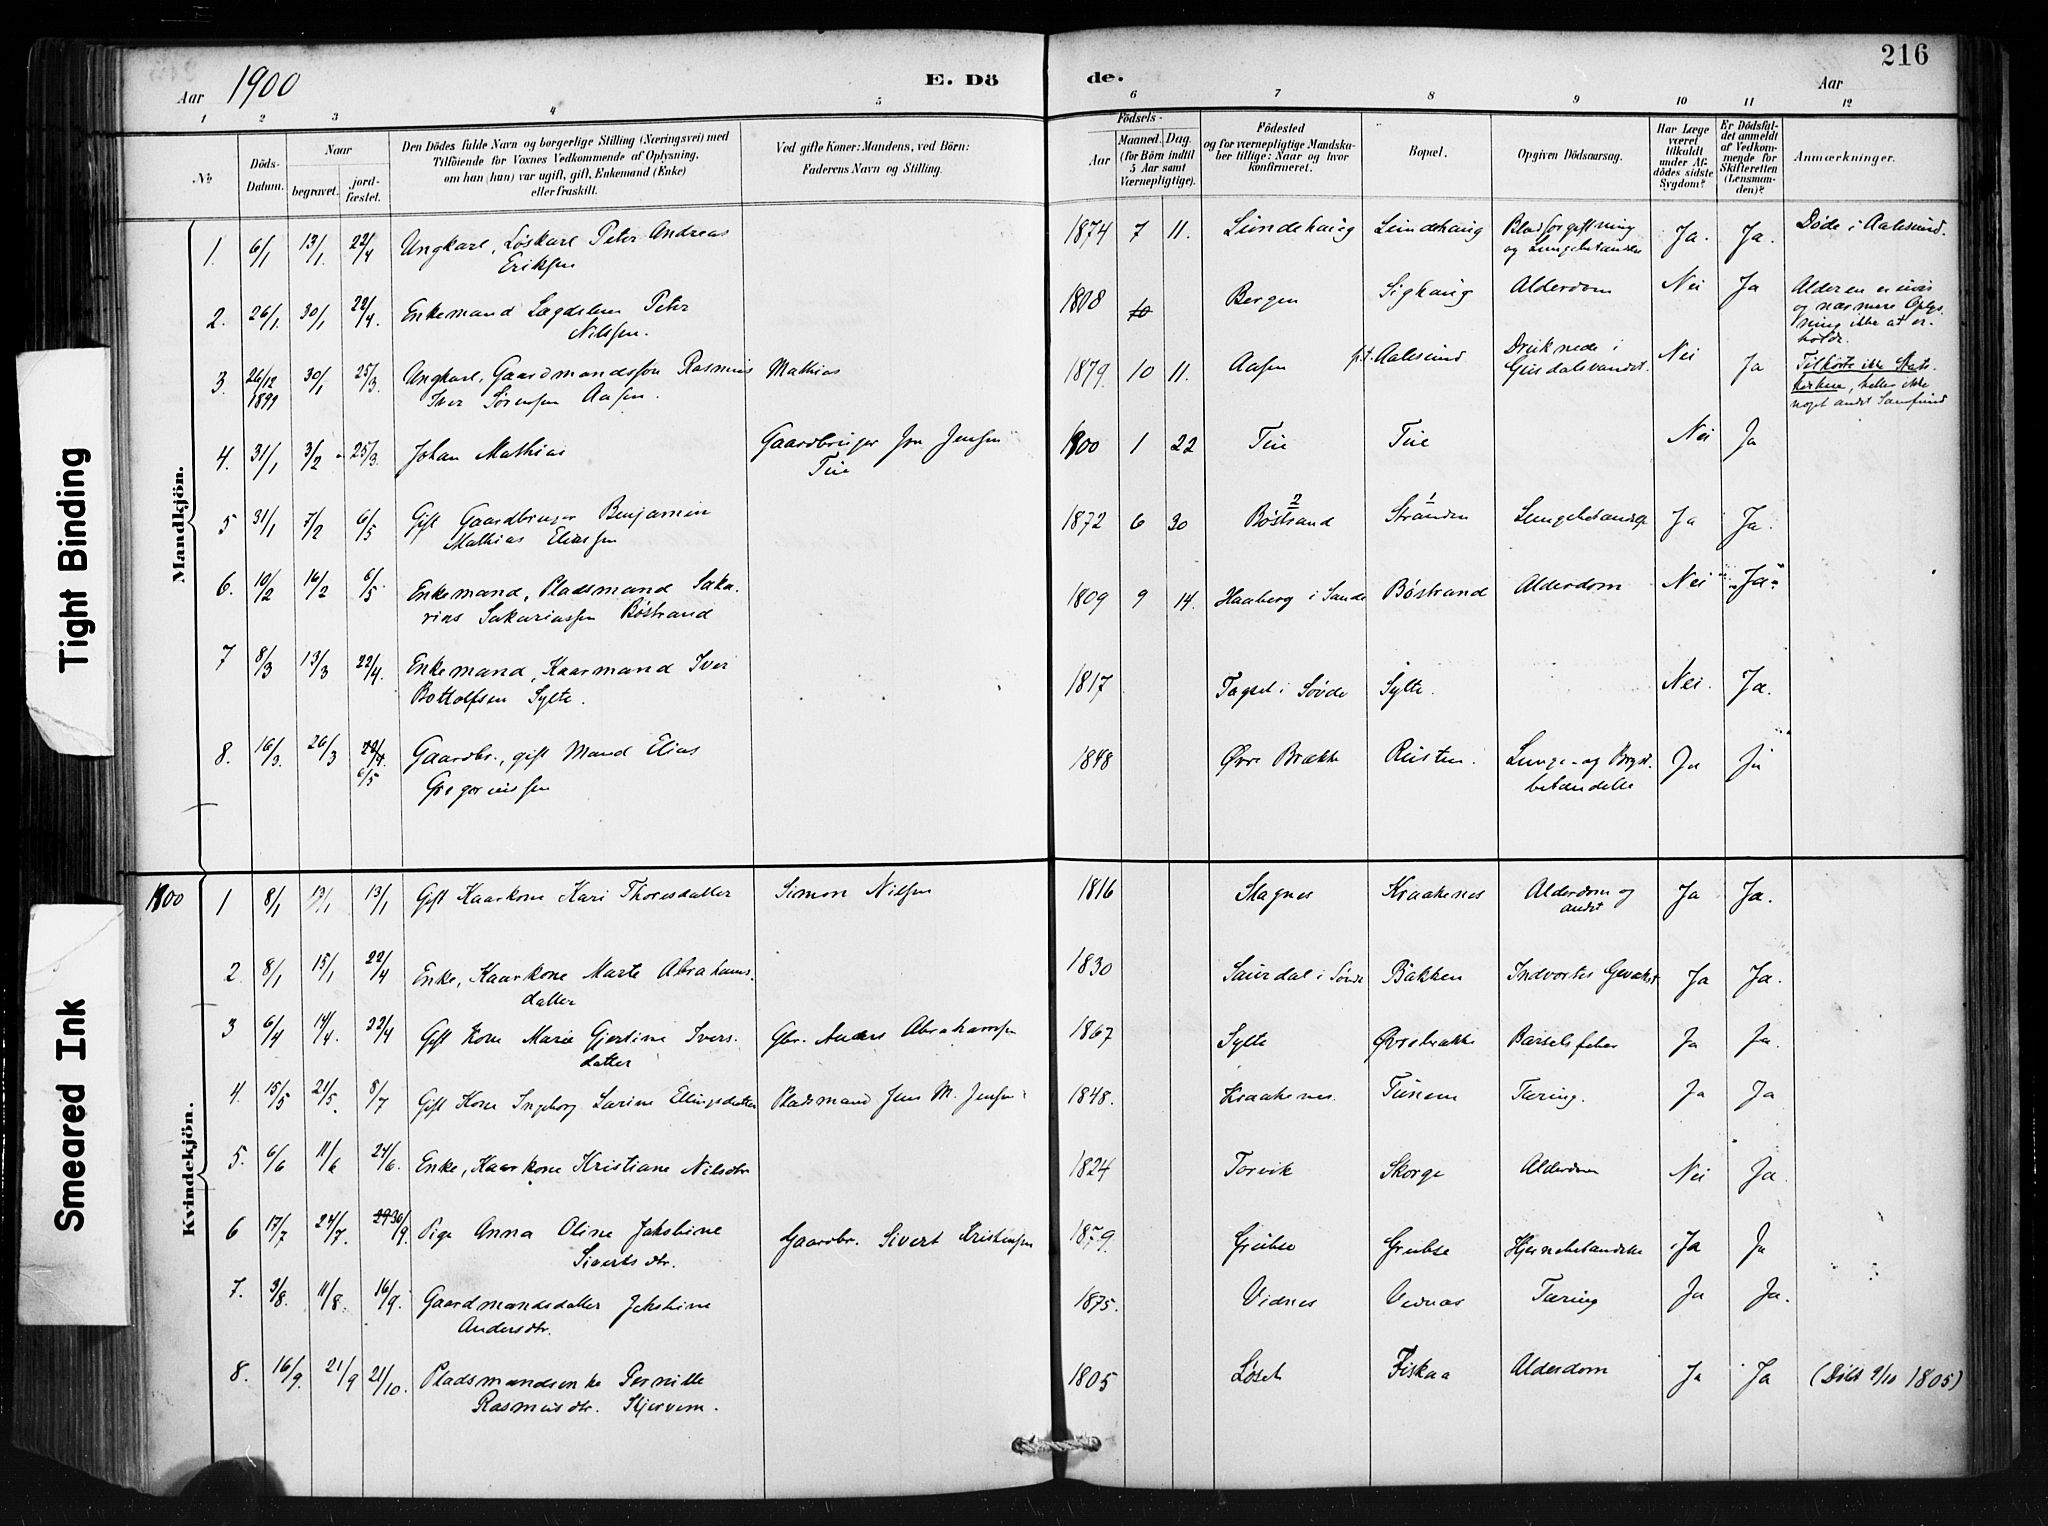 216
Aar 1900 E. Dö de. Aar
1 2 3 4 5 6 7 8 9 10 11 12
No.
Döds-
Datum.
Naar
begravet.
jord-
fæstet.
Den Dödes fulde Navn og borgerlige Stilling (Næringsvei) med
Tilföiende for Voxnes Vedkommende af Oplysning,
om han (hun) var ugift, gift, Enkemand (Enke)
eller fraskilt.
Ved gifte Koner: Mandens, ved Börn:
Faderens Navn og Stilling.
Födsels-
Aar
Maaned. Dag.
(for Börn indtil
5 Aar samt
Værnepligtige).
Födested
og for værnepligtige Mandska-
ber tillige: Naar og hvor
konfirmeret.
Bopæl.
Opgiven Dödsaarsag.
Har Læge
været
tilkaldt
under Af-
dödes sidste
Sygdom?
Er Dödsfal-
det anmeldt
af Vedkom-
mende for
Skifteretten
(Lensman-
den)?
Anmærkninger.
Mandkjön.
1. 6/1 13/1. 22/4 Ungkarl, Løskarl Peter Andreas 1874 7 11. Lundehaug Lundehaug Blodforgiftning Ja. Ja. Døde i Aalesund.
Eriksen og Lungebetændelse
2. 26/1. 30/1 22/4. Enkemand Lægdslem Peter 1808 10 Bergen Sighaug Alderdom Nei Ja Alderen er uvis
Nilssen. og nærmere Oplys-
ning ikke at er-
holde.
3. 26/12 1899 30/1 25/3. Ungkarl, Gaardmandssøn Rasmus Mathias 1879. 10 11. Aasen p.t. Aalesund Druknede i Nei Ja Tilhørte ikke Stats-
Iver Sørensen Aasen. Gusdalsvandet kirken, heller ikke
noget andet Samfund
4. 31/1 3/2 25/3. Johan Mathias Gaardbruger Jon Jensen 1900 1 22 Tue Tue Nei Ja
Tue
5 31/1 7/2 6/5 Gift Gaardbruger Benjamin 1872 6 30 2 Bøstrand 1 Stranden Lungebetændelse Ja Ja.
Mathias Eliassen
6. 10/2 16/2 6/5 Enkemand, Pladsmand Saka- 1809 9 14. Haaberg i Sande Bøstrand Alderdom Nei Ja
rias Sakariassen Bøstrand
7 8/3 13/3 22/4. Enkemand, Kaarmand Iver 1817 Tagset i Søvde Sylte. Nei. Ja.
Bottolfsen Sylte.
8. 16/3. 26/3 22/4. 6/5 Gaardbr., gift Mand Elias 1848 Øvre Brække Rusten. Lunge- og Bryst- Ja Ja
Gregoriussen betændelse
Kvindekjön.
1900 1 8/1 13/1 13/1 Gift Kaarkone Kari Thoresdatter Simon Nilsen 1816 Skagnes Kraakenes Alderdom og Ja Ja.
andet
2 8/1 15/1 22/4 Enke, Kaarkone Marte Abrahams- 1830 Saurdal i Søvde Bakken Indvortes Gevækst Ja Ja.
datter
3 6/4 14/4. 22/4 Gift Kone Marie Gjertine Ivers- Gbr. Anders Abrahamsen 1867 Sylte Øvrebrække Barselsfeber Ja Ja.
datter
4. 15/5 21/5. 8/7 Gift Kone Ingeborg Larine Ellingsdatter Pladsmand Jens M. Jensen 1848. Kraakenes Tunem Tæring. Ja Ja
5. 6/6 11/6 24/6. Enke, Kaarkone Kristiane Nilsdtr 1824 Torvik Skorge Alderdom Nei Ja
6 17/7 24/7. 29 30/9 Pige Anna Oline Jakobine Gaardbr. Sivert Kristensen 1879. Grubse Grubse Hjernebetændelse Ja Ja
Sivertsdtr.
7. 3/8. 11/8 16/9. Gaardmandsdatter Jakobine 1875. Vidnes Vidnes Tæring Ja Ja.
Andersdtr.
8. 16/9. 21/9 21/10 Pladsmandsenke Pernille 1805 Løset Fiskaa Alderdom Ja Ja (Døbt 9/10 1805)
Rasmusdtr. Skjervem.
Tight Binding
Smeared Ink